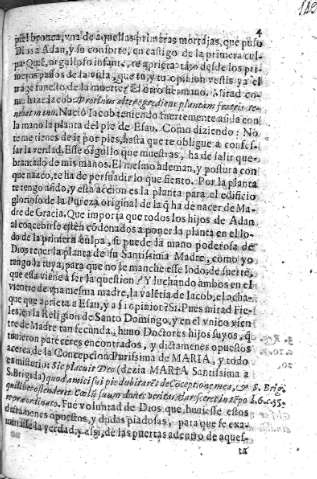 4
piel bronca, vna de aquellas primeras mortajas, que puso
Dios a Adan, y su consorte, en castigo de la primera cul-
pa. Què orgulloso infante, te aprieta tãto desde los pri-
meros pasos de la vida, que tu, y tu opinion vestis ya el
trage funesto de la muerte? El otro hermano. Mirad co-
mo hazeJacob. Protinus alter egrediens plantam fratris te-
nebat manu. Naciò Iacob teniendo fuertemente asida con
la mano la planta del pie de Esau. Como diziendo: No
te me tienes de ir por pies, hasta que te obligue a confes-
sar la verdad. Esse orgullo que muestras, ha de salir que-
brantado de mis manos. El mesmo ademan, y postura con
que nazco, te ha de persuadir lo que siento. Por la planta
te tengo asido, y esta accion es la planta para el edificio
glorioso de la Pureza original de la q̃ ha de nacer de Ma-
dre de Gracia. Que importa que todos los hijos de Adan
al cõcebirse estèn cõdenados a poner la planta en el lo-
do de la primera culpa, si puede la mano poderosa de
Dios tener la planta de su Santissima Madre, como yo
tengo la tuya, para que no se manche esse lodo: de suerte,
que essa viene a ser la question? Y luchando ambos en el
vientre de vna mesma madre, la valẽtia de Iacob, el lucha-
que que aprieta a Esau, y a su opinion? Si. Pues mirad Fie-
les, en la Religion de Santo Domingo, y en el vnico vien-
tre de Madre tan fecunda, huuo Doctores hijos suyos, q̃
tuuieron pareceres encontrados, y dictamenes opuestos
acerca de la Concepcion Purissima de MARIA, y todo
es misterio. Sic placuit Deo (dezia MARIA Santissima a
S. Brigida) quod amici sui piè dubitarẽt de Cõceptione mea, &
quilibet ostenderet Cœlũ suum donec veritas claresceret in tẽpo
reordinato. Fue voluntad de Dios que huuiesse estos
dictamenes opuestos, y dudas piadosas, para que se exa-
minasse la verdad, y assi, de las puertas adentro de aques-
ta
S. Brig.
l. 6. c. 55.